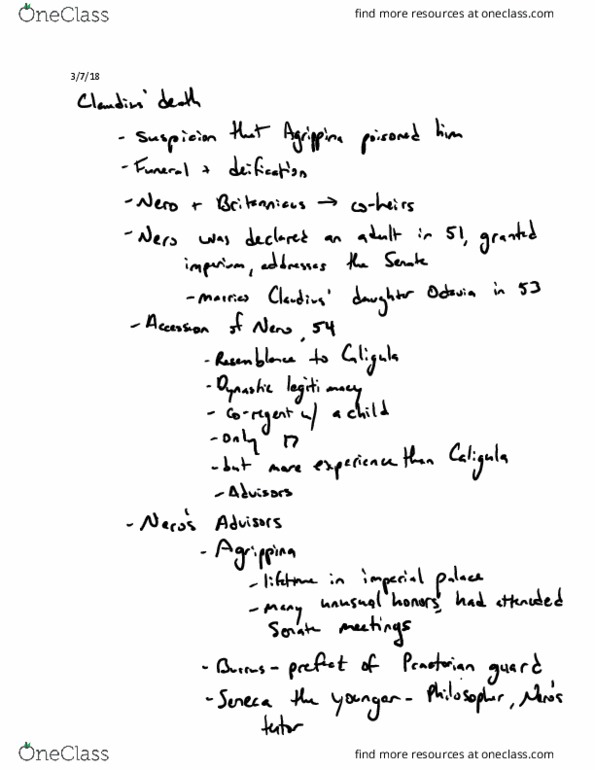 OneClass
find more resources at oneclass.com
3/7/18
Claudius' death
- Suspicion that Agrippina poisoned him
- Funeral + deification
- Nero + Britannicus → co-heirs
- Nero was declared an adult in 51, granted
imperium, addresses the Senate
- marries Claudius' daughter Octavia in 53
- Accession of Nero, 54
- Resemblance to Caligula
- Dynastic legitimacy
- co-regent w/ a child
- only 17
- but more experience than Caligula
- Advisors
- Nero's Advisors
- Agrippina
- lifetime in imperial palace
- many unusual honors, had attended
Senate meetings
- Burrus - prefect of Praetorian guard
- Seneca the younger - Philosopher, Nero's
tutor
OneClass
find more resources at oneclass.com